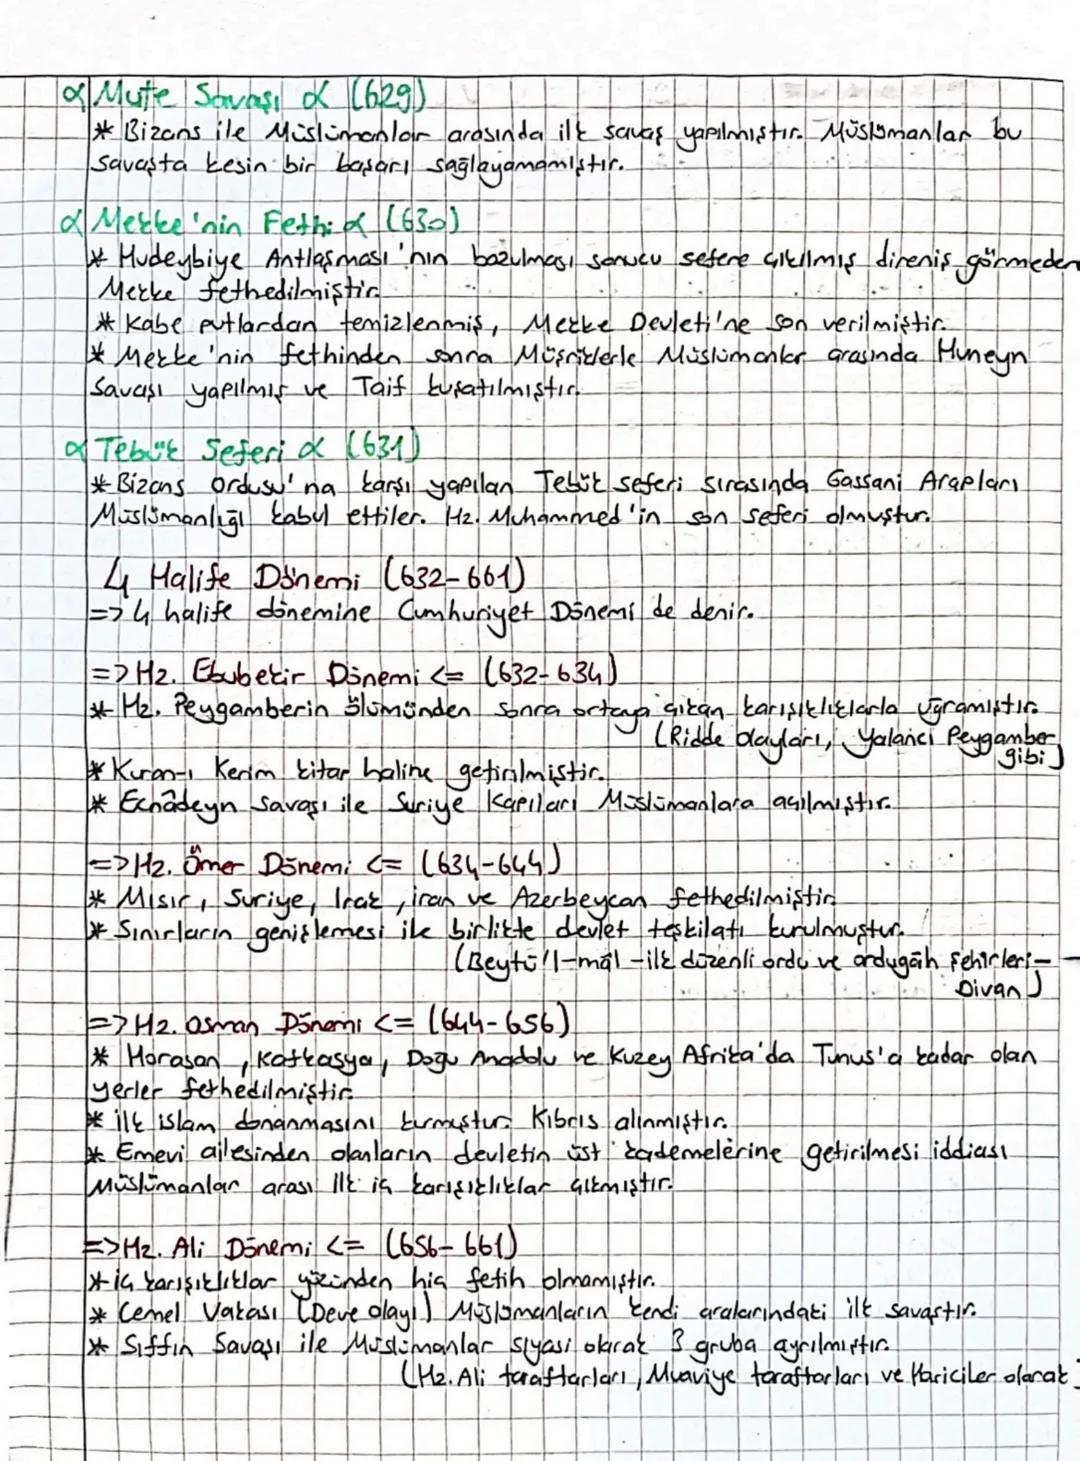 α Mute Savaşı α (629)
* Bizans ile Müslümanlar arasında ilk savaş yapılmıştır. Müslümanlar bu
savaşta kesin bir başarı sağlayamamıştır.
α Mekke'nin Fethi α (630)
* Hudeybiye Antlaşması'nın bozulması sonucu sefere çıkılmış direniş görmeden
Mekke fethedilmiştir.
* Kabe putlardan temizlenmiş, Mekke Devleti'ne son verilmiştir.
* Mekke'nin fethinden sonra Müşriklerle Müslümanlar arasında Huneyn
Savaşı yapılmış ve Taif kuşatılmıştır.
α Tebük Seferi α (631)
* Bizans Ordusu'na karşı yapılan Tebük seferi sırasında Gassani Arapları
Müslümanlığı kabul ettiler. Hz. Muhammed'in son seferi olmuştur.
4 Halife Dönemi (632-661)
=> 4 halife dönemine Cumhuriyet Dönemi de denir.
=> Hz. Ebubekir Dönemi <= (632-634)
* Hz. Peygamberin ölümünden sonra ortaya çıkan karışıklıklarla uğramıştır.
(Ridde olayları, Yalancı Peygamber
gibi)
* Kuran-ı Kerim kitap haline getirilmiştir.
* Ecnâdeyn Savaşı ile Suriye Kapıları Müslümanlara açılmıştır.
=> Hz. Ömer Dönemi <= (634-644)
* Mısır, Suriye, Irak, iran ve Azerbeycan fethedilmiştir.
* Sınırların genişlemesi ile birlikte devlet teşkilatı kurulmuştur.
(Beytü'l-mâl -ilk düzenli ordu ve ordugâh şehirleri-
Divan)
=> Hz. Osman Dönemi <= (644-656)
* Horasan, Kafkasya, Doğu Anadolu ve Kuzey Afrika'da Tunus'a kadar olan
yerler fethedilmiştir.
* ilk islam donanmasını kurmuştur. Kıbrıs alınmıştır.
* Emevi ailesinden olanların devletin üst kademelerine getirilmesi iddiası
Müslümanlar arası ilk iç karışıklıklar çıkmıştır.
=> Hz. Ali Dönemi <= (656-661)
* iç karışıklıklar yüzünden hiç fetih olmamıştır.
* Cemel Vakası (Deve olayı) Müslümanların kendi aralarındaki ilk savaştır.
* Sıffin Savaşı ile Müslümanlar siyasi olarak 3 gruba ayrılmıştır.
(Hz. Ali taraftarları, Muaviye taraftarları ve Hariciler olarak)